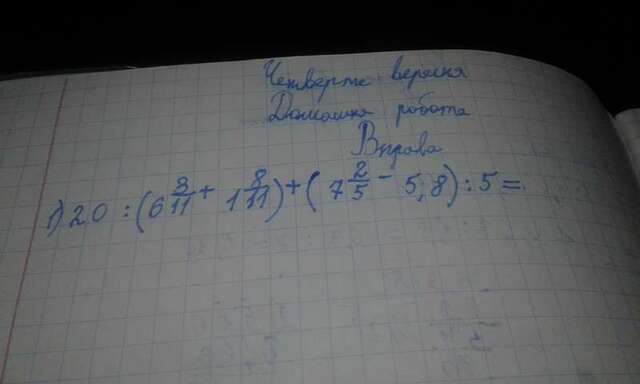 Четверте вересня
Домашня робота
Вправа
1) 20 : (6 3/11 + 1 8/11) + (7 2/5 - 5,8) : 5 =